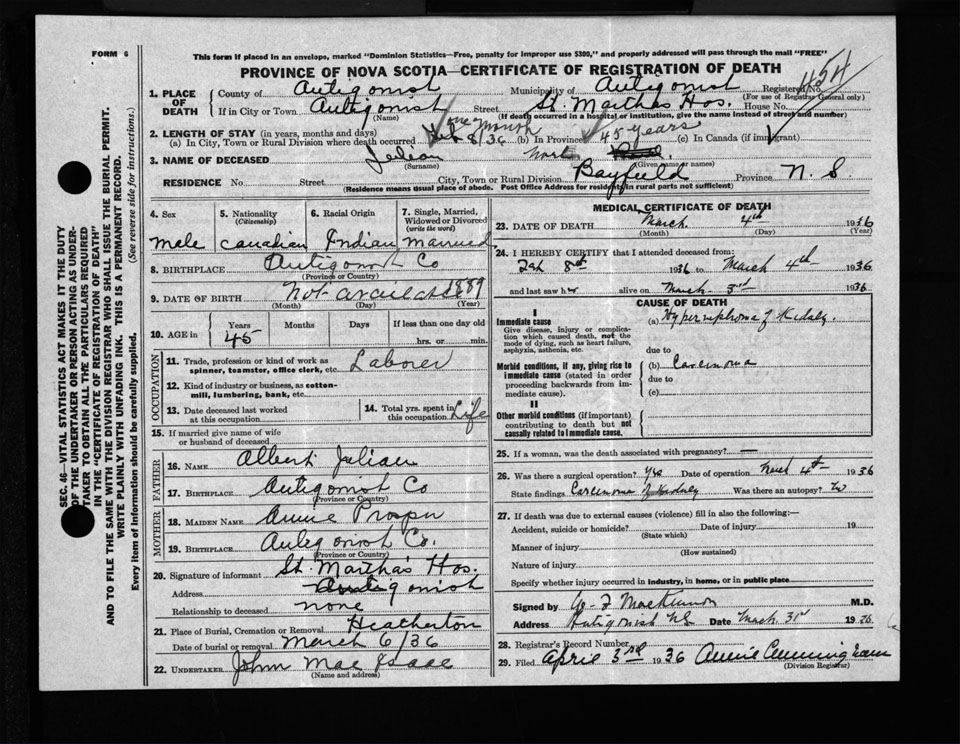 FORM 6
This form if placed in an envelope, marked "Dominion Statistics—Free, penalty for improper use $300," and properly addressed will pass through the mail "FREE"
PROVINCE OF NOVA SCOTIA—CERTIFICATE OF REGISTRATION OF DEATH
454
1. PLACE OF DEATH County of Antigonish Municipality of Antigonish Registered No.
(For use of Registrar General only)
If in City or Town Antigonish Street St. Marthas Hos. House No.
(Name) (If death occurred in a hospital or institution, give the name instead of street and number)
one month
2. LENGTH OF STAY (in years, months and days)
(a) In City, Town or Rural Division where death occurred Feb 8/36 (b) In Province 45 years (c) In Canada (if immigrant)
3. NAME OF DECEASED Julian
(Surname) (Given name or names)
RESIDENCE No. Street City, Town or Rural Division Bayfield Province N. S.
(Residence means usual place of abode. Post Office Address for residents in rural parts not sufficient)
4. Sex 5. Nationality (Citizenship) 6. Racial Origin 7. Single, Married, Widowed or Divorced (write the word)
male Canadian Indian married
8. BIRTHPLACE Antigonish Co
(Province or Country)
9. DATE OF BIRTH Not available 1889
(Month) (Day) (Year)
10. AGE in Years Months Days If less than one day old
45 hrs. or min.
OCCUPATION
11. Trade, profession or kind of work as spinner, teamster, office clerk, etc. Laborer
12. Kind of industry or business, as cotton-mill, lumbering, bank, etc.
13. Date deceased last worked at this occupation
14. Total yrs. spent in this occupation Life
15. If married give name of wife or husband of deceased
FATHER
16. NAME Albert Julian
17. BIRTHPLACE Antigonish Co
(Province or Country)
MOTHER
18. MAIDEN NAME Annie Prosper
19. BIRTHPLACE Antigonish Co.
(Province or Country)
20. Signature of informant St. Marthas Hos.
Address Antigonish
Relationship to deceased none
21. Place of Burial, Cremation or Removal Heatherton
Date of burial or removal March 6/36
22. UNDERTAKER John Mac Isaac
(Name and address)
MEDICAL CERTIFICATE OF DEATH
23. DATE OF DEATH March 4th 1936
(Month) (Day) (Year)
24. I HEREBY CERTIFY that I attended deceased from:
Feb 8th 1936 to March 4th 1936
and last saw h alive on March 3rd 1936
CAUSE OF DEATH
I
Immediate cause
Give disease, injury or complication which caused death, not the mode of dying, such as heart failure, asphyxia, asthenia, etc.
(a) Hypernephroma of Kidney
due to
Morbid conditions, if any, giving rise to immediate cause (stated in order proceeding backwards from immediate cause).
(b) Carcinoma
due to
(c)
II
Other morbid conditions (if important) contributing to death but not causally related to immediate cause.
25. If a woman, was the death associated with pregnancy? —
26. Was there a surgical operation? yes Date of operation March 4th 1936
State findings Carcinoma of Kidney Was there an autopsy? no
27. If death was due to external causes (violence) fill in also the following:—
Accident, suicide or homicide? Date of injury 19
(State which)
Manner of injury
(How sustained)
Nature of injury
Specify whether injury occurred in industry, in home, or in public place
Signed by W. F. MacKinnon M.D.
Address Antigonish NS Date March 31st 1936
28. Registrar's Record Number
29. Filed April 3rd 1936 Annie Cunningham
(Division Registrar)
SEC. 46—VITAL STATISTICS ACT MAKES IT THE DUTY
OF THE UNDERTAKER OR PERSON ACTING AS UNDER-
TAKER TO OBTAIN ALL THE PARTICULARS REQUIRED
IN THE "CERTIFICATE OF REGISTRATION OF DEATH"
AND TO FILE THE SAME WITH THE DIVISION REGISTRAR WHO SHALL ISSUE THE BURIAL PERMIT.
WRITE PLAINLY WITH UNFADING INK. THIS IS A PERMANENT RECORD.
Every item of information should be carefully supplied. (See reverse side for instructions.)